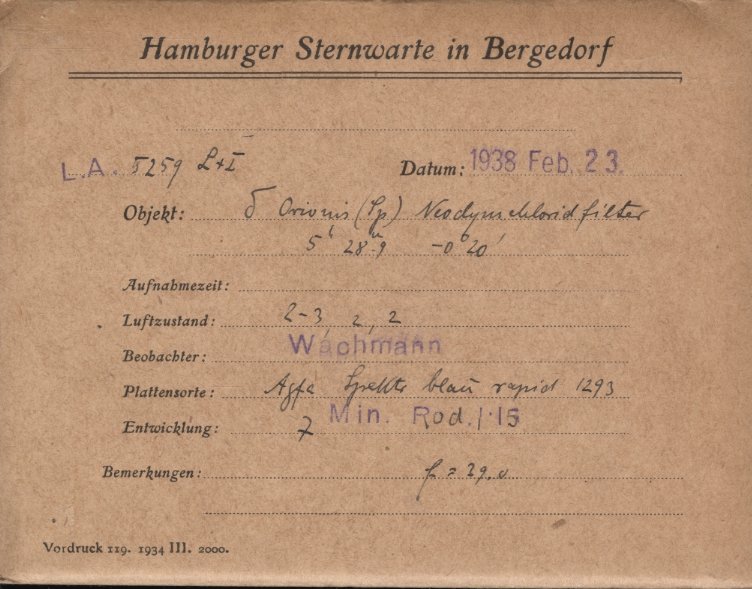 Hamburger Sternwarte in Bergedorf
L.A. 5259 L+I Datum: 1938 Feb. 23.
Objekt: δ Orionis (Sp) Neodymchloridfilter
5ʰ 28ᵐ.9 −0° 20'
Aufnahmezeit:
Luftzustand: 2-3, 2, 2
Beobachter: Wachmann
Plattensorte: Agfa Spektr blau rapid 1293
Entwicklung: 7 Min. Rod. 1:15
Bemerkungen: f = 29.0
Vordruck 119. 1934 III. 2000.